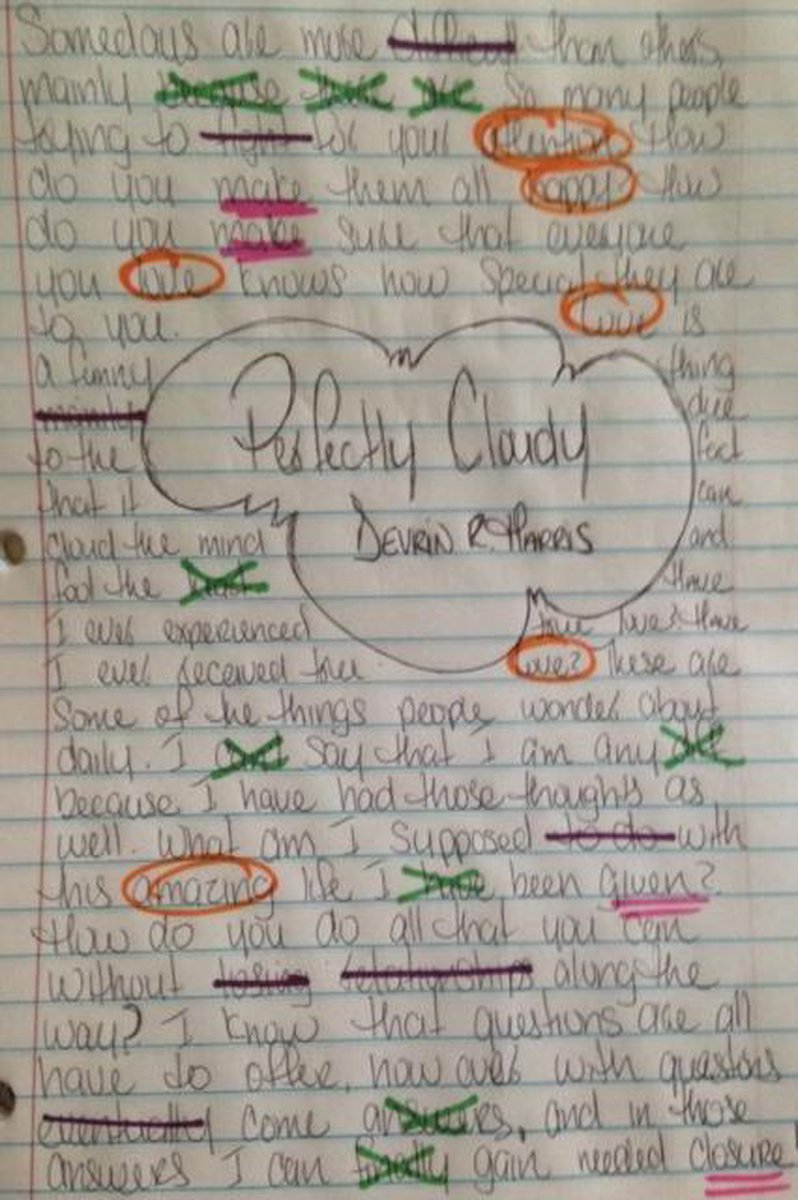 Somedays are more difficult than others,
mainly because there are so many people
trying to fight for your attention. How
do you make them all happy? How
do you make sure that everyone
you love knows how special they are
to you. Love is
a funny thing
mainly due
to the fact
that it can
cloud the mind and
fool the heart. Have
I ever experienced true love? Have
I ever received true love? These are
Some of the things people wonder about
daily. I can't say that I am any
because I have had those thoughts as
well. What am I supposed to do with
this amazing life I have been given?
How do you do all that you can
without losing relationships along the
way? I know that questions are all I
have to offer, how ever with questions
eventually come answers, and in those
answers I can finally gain needed closure!
Perfectly Cloudy
DEVRIN R. HARRIS